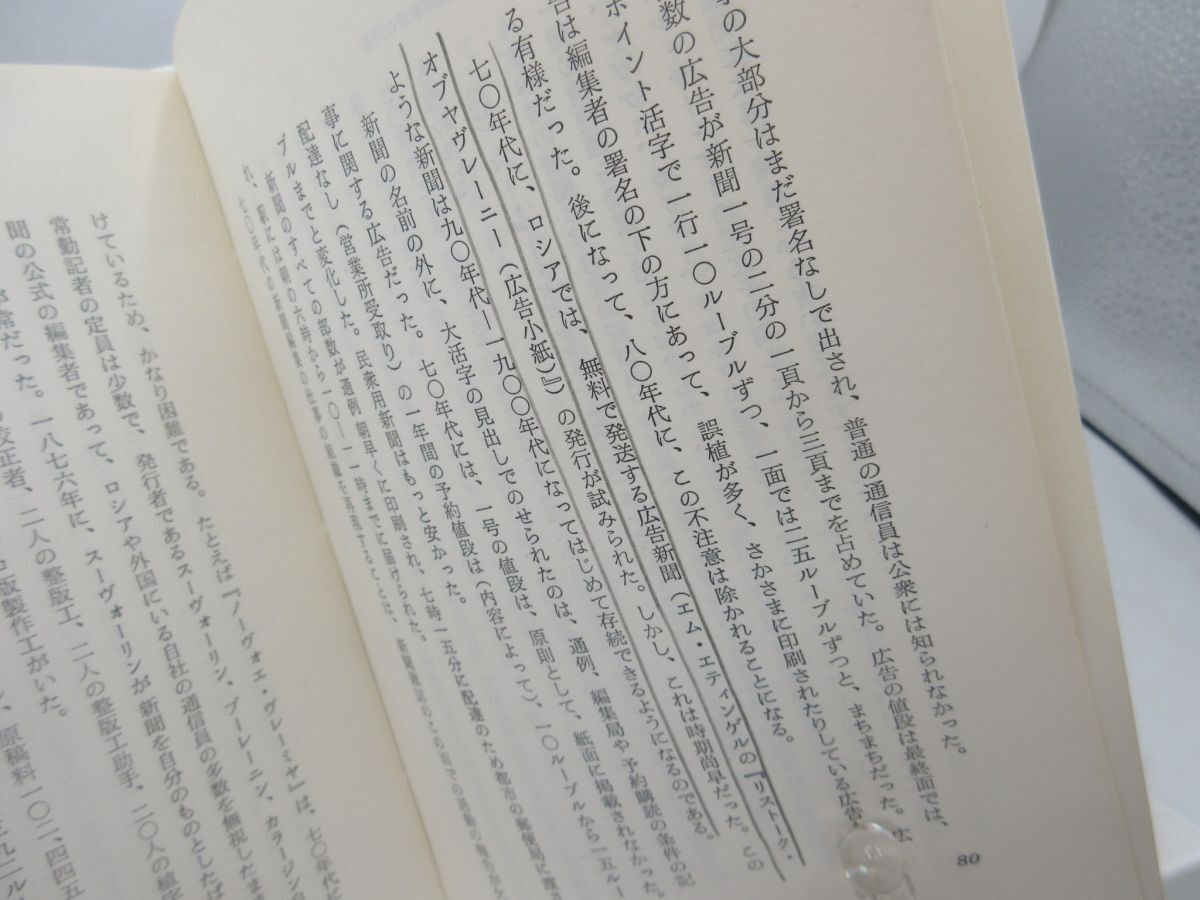 の大部分はまだ署名なしで出され、普通の通信員は公衆には知られなかった。
数の広告が新聞一号の二分の一頁から三頁までを占めていた。広告の値段は最終面では、
ポイント活字で一行一〇ルーブルずつ、一面では二五ルーブルずっと、まちまちだった。広
告は編集者の署名の下の方にあって、誤植が多く、さかさまに印刷されたりしている広告
る有様だった。後になって、八〇年代に、この不注意は除かれることになる。
七〇年代に、ロシアでは、無料で発送する広告新聞(エム・エティンゲルの『リストーク・
オブヤヴレーニー(広告小紙)』)の発行が試みられた。しかし、これは時期尚早だった。この
ような新聞は九〇年代―一九〇〇年代になってはじめて存続できるようになるのである。
新聞の名前の外に、大活字の見出しでのせられたのは、通例、編集局や予約購読の条件の記
事に関する広告だった。七〇年代には、一号の値段は、原則として、紙面に掲載されなかった。
配達なし(営業所受取り)の一年間の予約値段は(内容によって)、一〇ルーブルから一五ルー
ブルまでと変化した。民衆用新聞はもっと安かった。
新聞のすべての部数が通例朝早くに印刷され、七時一五分に配達のため都市の郵便局に
には朝の六時から一〇―一一時までに届けられた。
七〇年代の新聞編集の仕事の
80
けているため、かなり困難である。たとえば『ノーヴォエ・ヴレーミヤ』は、七〇年代に
常勤記者の定員は少数で、発行者であるスーヴォーリン、ブレーニン、カラージン
聞の公式の編集者であって、ロシアや外国にいる自社の通信員の多数を無視したま
常だった。一八七六年に、スーヴォーリンが新聞を自分のものとしたば
校正者、二人の整版工、二人の整版工助手、二〇人の植字
版製作工がいた。
原稿料一〇二、四四五